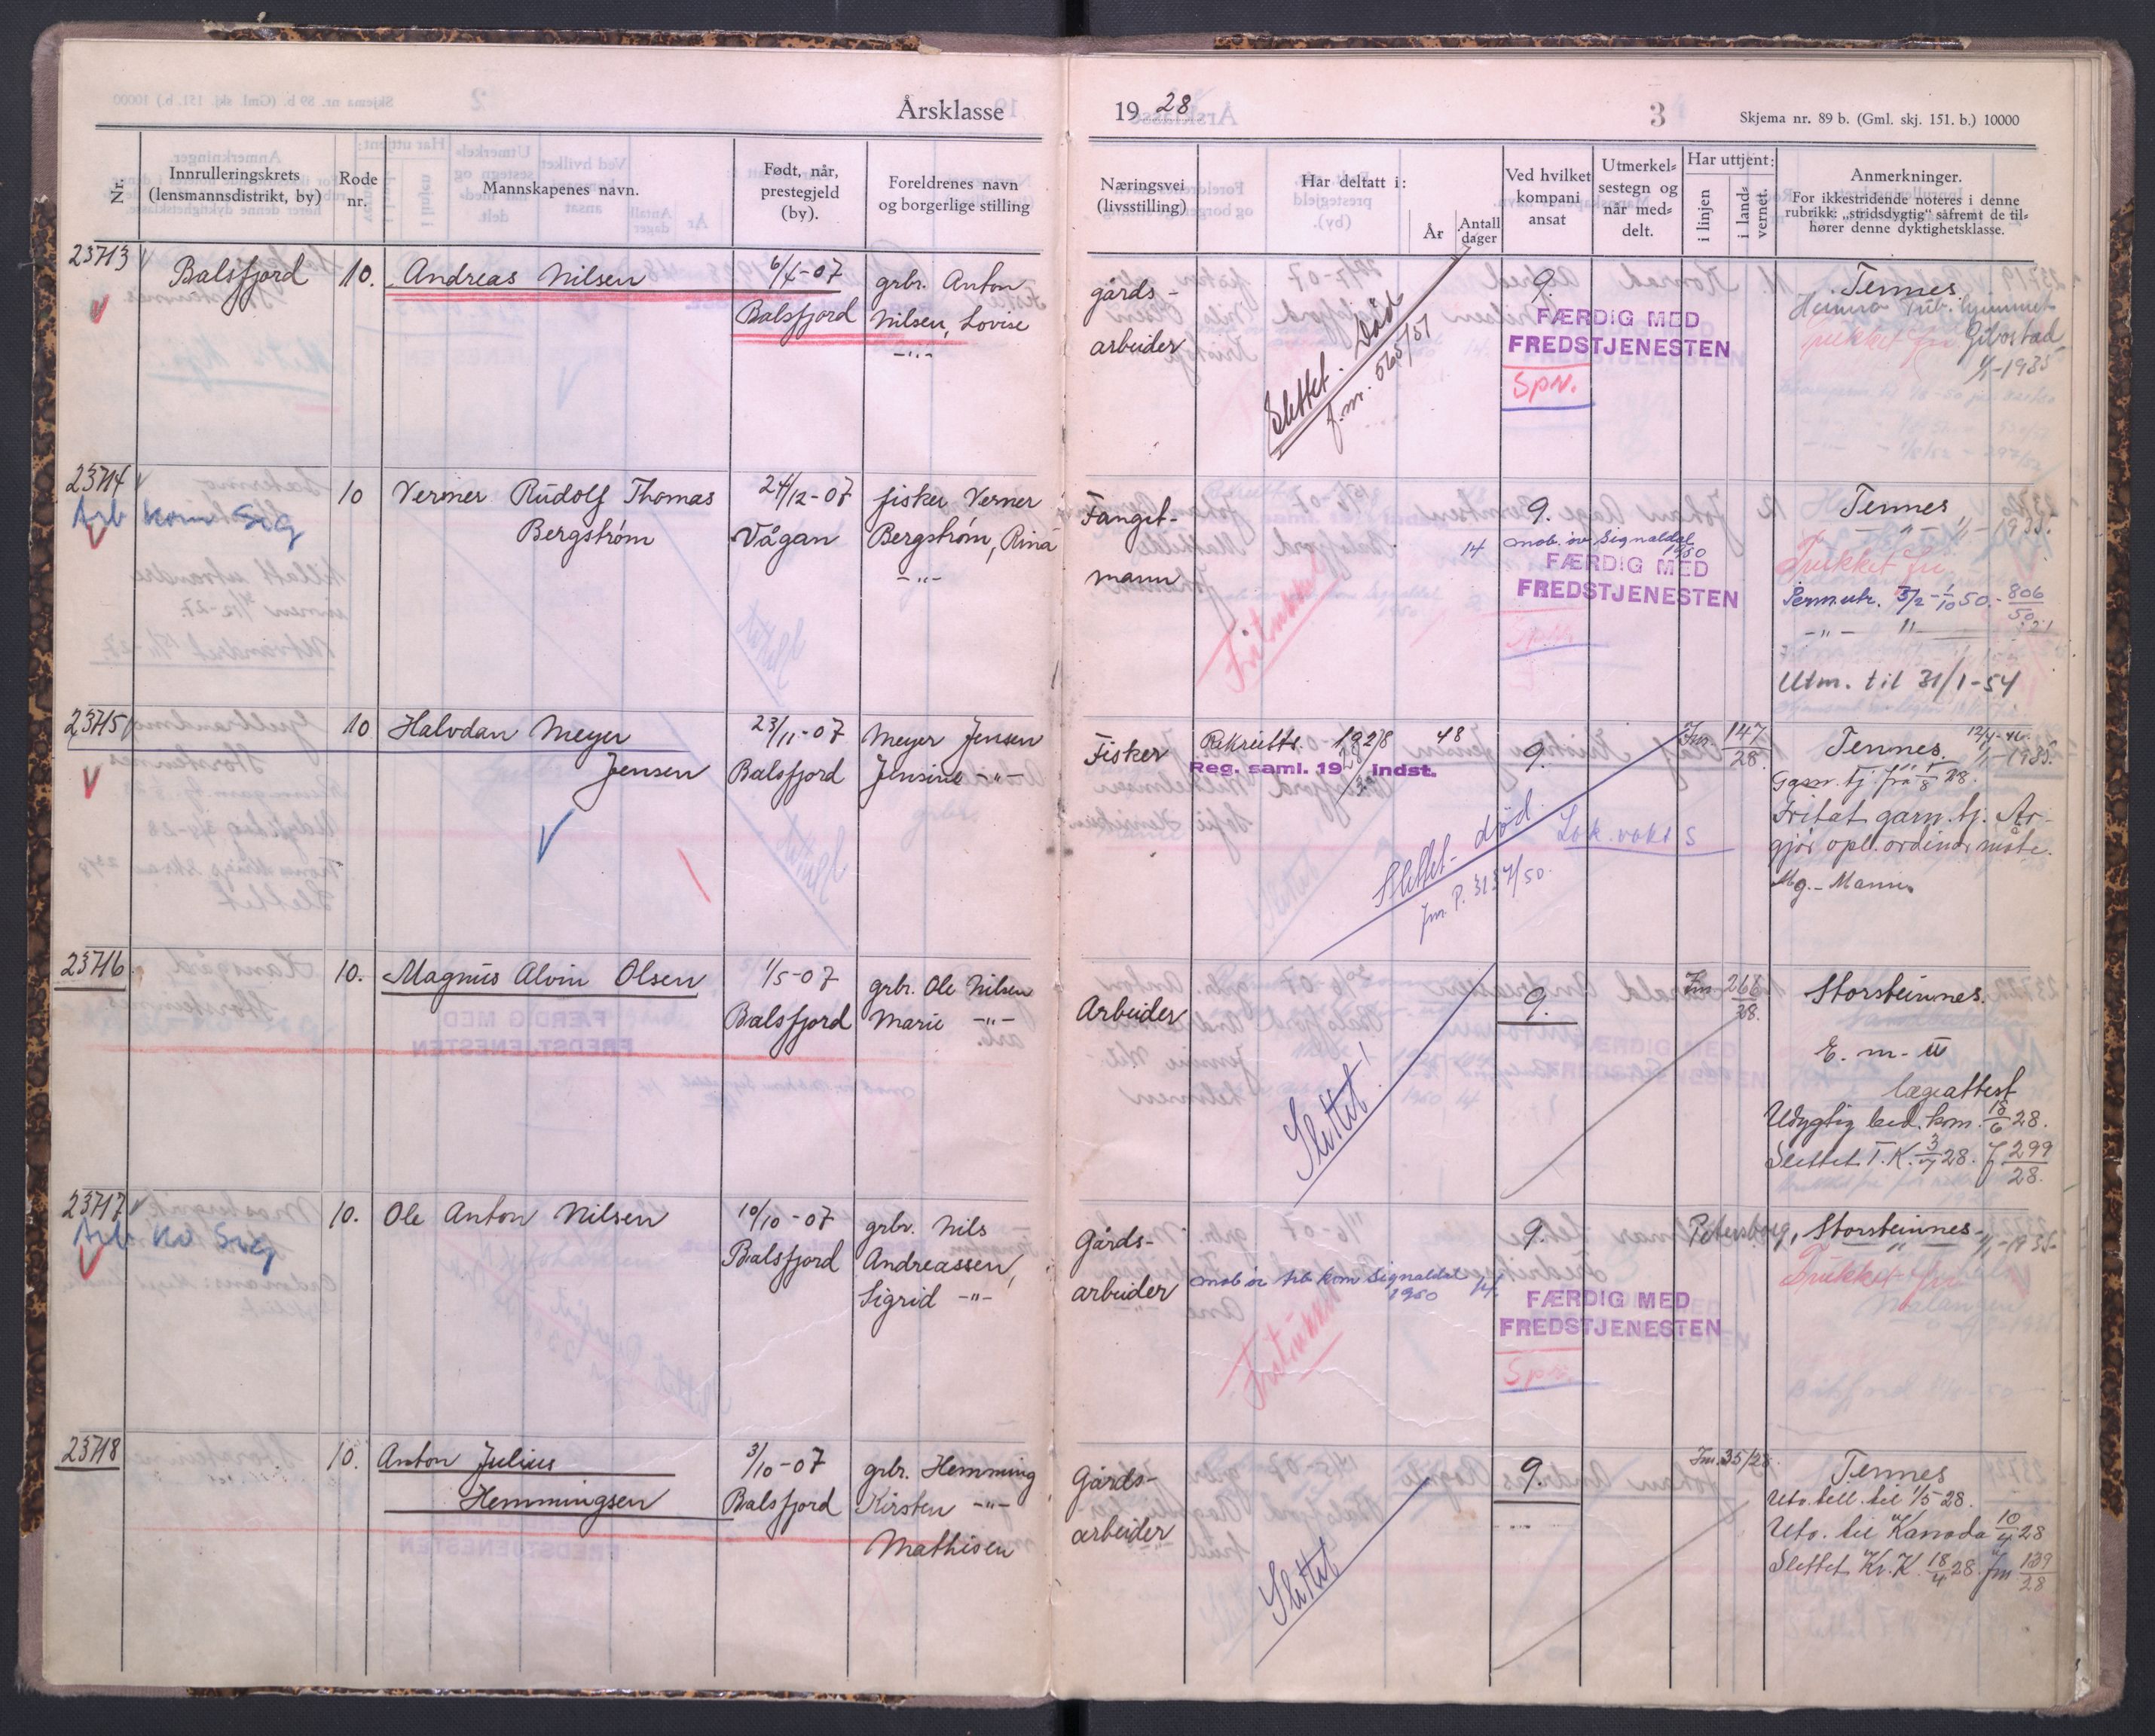 Årsklasse
19 28
3
Skjema nr. 89 b. (Gml. skj. 151. b.) 10000
Nr.
Innrulleringskrets
(lensmannsdistrikt, by)
Rode
nr.
Mannskapenes navn.
Født, når,
prestegjeld
(by).
Foreldrenes navn
og borgerlige stilling
Næringsvei
(livsstilling)
Har deltatt i:
År
Antall
dager
Ved hvilket
kompani
ansat
Utmerkel-
sestegn og
når med-
delt.
Har uttjent:
i linjen
i land-
vernet.
Anmerkninger.
For ikkestridende noteres i denne
rubrikk: „stridsdygtig" såfremt de til-
hører denne dyktighetsklasse.
23713
Balsfjord
10.
Andreas Nilsen
6/4-07
Balsfjord
grbr. Anton
Nilsen, Lovise
-"-
gårds-
arbeider
Slettet. Død
j.nr. 565/51
9.
FÆRDIG MED
FREDSTJENESTEN
Spv.
Tennes.
Gibostad
1/1-1935
23714
Arb kom Sig
10
Verner Rudolf Thomas
Bergstrøm
24/12-07
Vågan
fisker Verner
Bergstrøm, Rina
-"-
Fangst-
mann
14
9.
mob. øv Signaldal
1950
FÆRDIG MED
FREDSTJENESTEN
Tennes
" 1/1-1935.
Trukket fri
Perm.utr. 3/2-1/10 50.- 806/50
-"- "
Utm. til 31/1-54
23715
10
Halvdan Meyer
Jensen
23/11-07
Balsfjord
Meyer Jensen
Jensine -"-
Fisker
Rekrutts. 1928 48
Reg. saml. 19 28 indst.
9.
Slettet- død.
Jnr. P. 3137/50.
Lok. vakt S
Jnr. 147/28
12/4-46
Tennes.
" 1/1-1935.
Garn. tj. fra 1/8 28.
Fritat garn. tj. Av-
gjør opl. ordinær måte.
Mg.-Mann.
23716
10.
Magnus Alvin Olsen
1/5-07
Balsfjord
grbr. Ole Nilsen
Marie -"-
Arbeider
Slettet!
9.
Jnr 266/28.
Storsteinnes.
E. m. II
lægeattest
Udygtig bed. kom. 15/6 28.
Slettet T. K. 3/7 28. J 299/28.
23717
Arb ko Sig
10.
Ole Anton Nilsen
10/10-07
Balsfjord
grbr. Nils
Andreassen,
Sigrid -"-
Gårds-
arbeider
mob øv Arb kom Signaldal 14.
1950
9.
FÆRDIG MED
FREDSTJENESTEN
Spv.
Petersborg, Storsteinnes-
" 1/1-1935-
Trukket fri
23718
10.
Anton Julius
Hemmingsen
3/10-07
Balsfjord
grbr. Hemming
Kirsten -"-
Mathisen
Gårds-
arbeider
Slettet
9.
Jnr. 35/28.
Tennes
Utv. till. til 1/5 28.
Utv. til Kanada 10/4 28
Slettet Kr. K. 18/4 28. Jnr 139/28